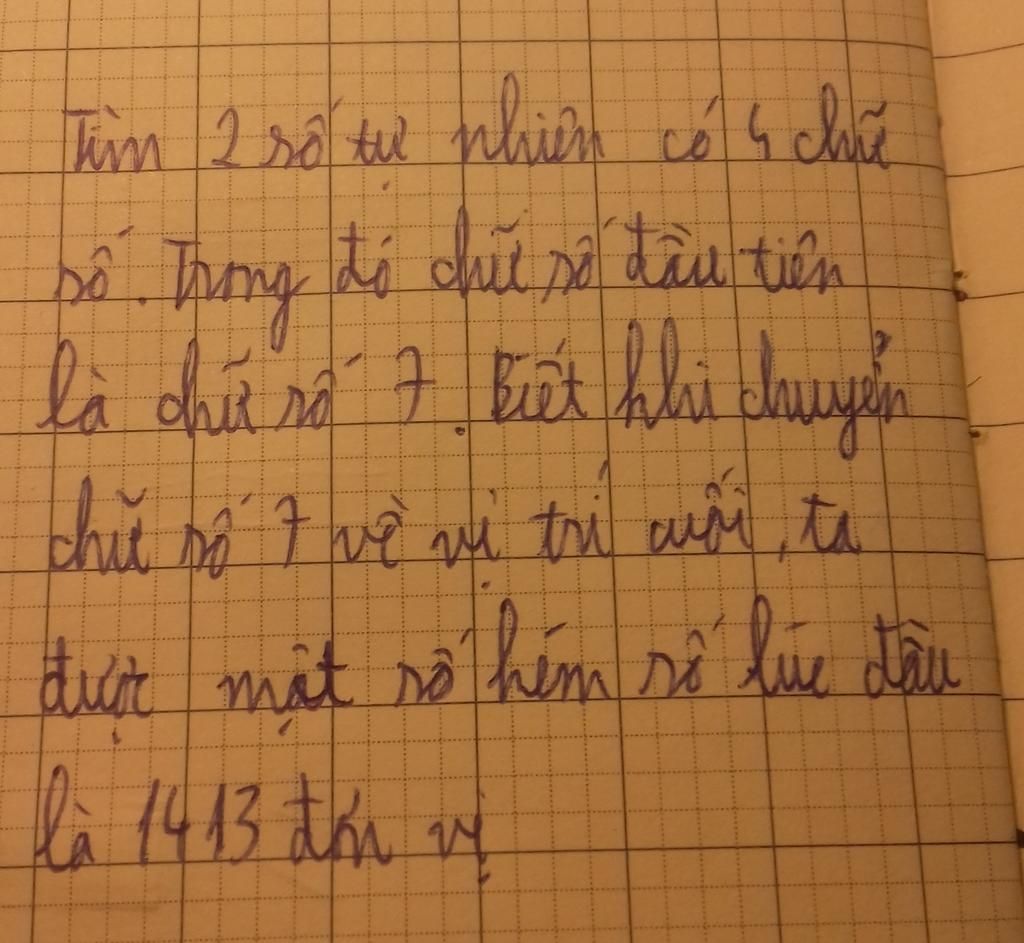 Tìm 2 số tự nhiên có 4 chữ
số. Trong đó chữ số đầu tiên
là chữ số 7. Biết khi chuyển
chữ số 7 về vị trí cuối, ta
được một số kém số lúc đầu
là 1413 đơn vị